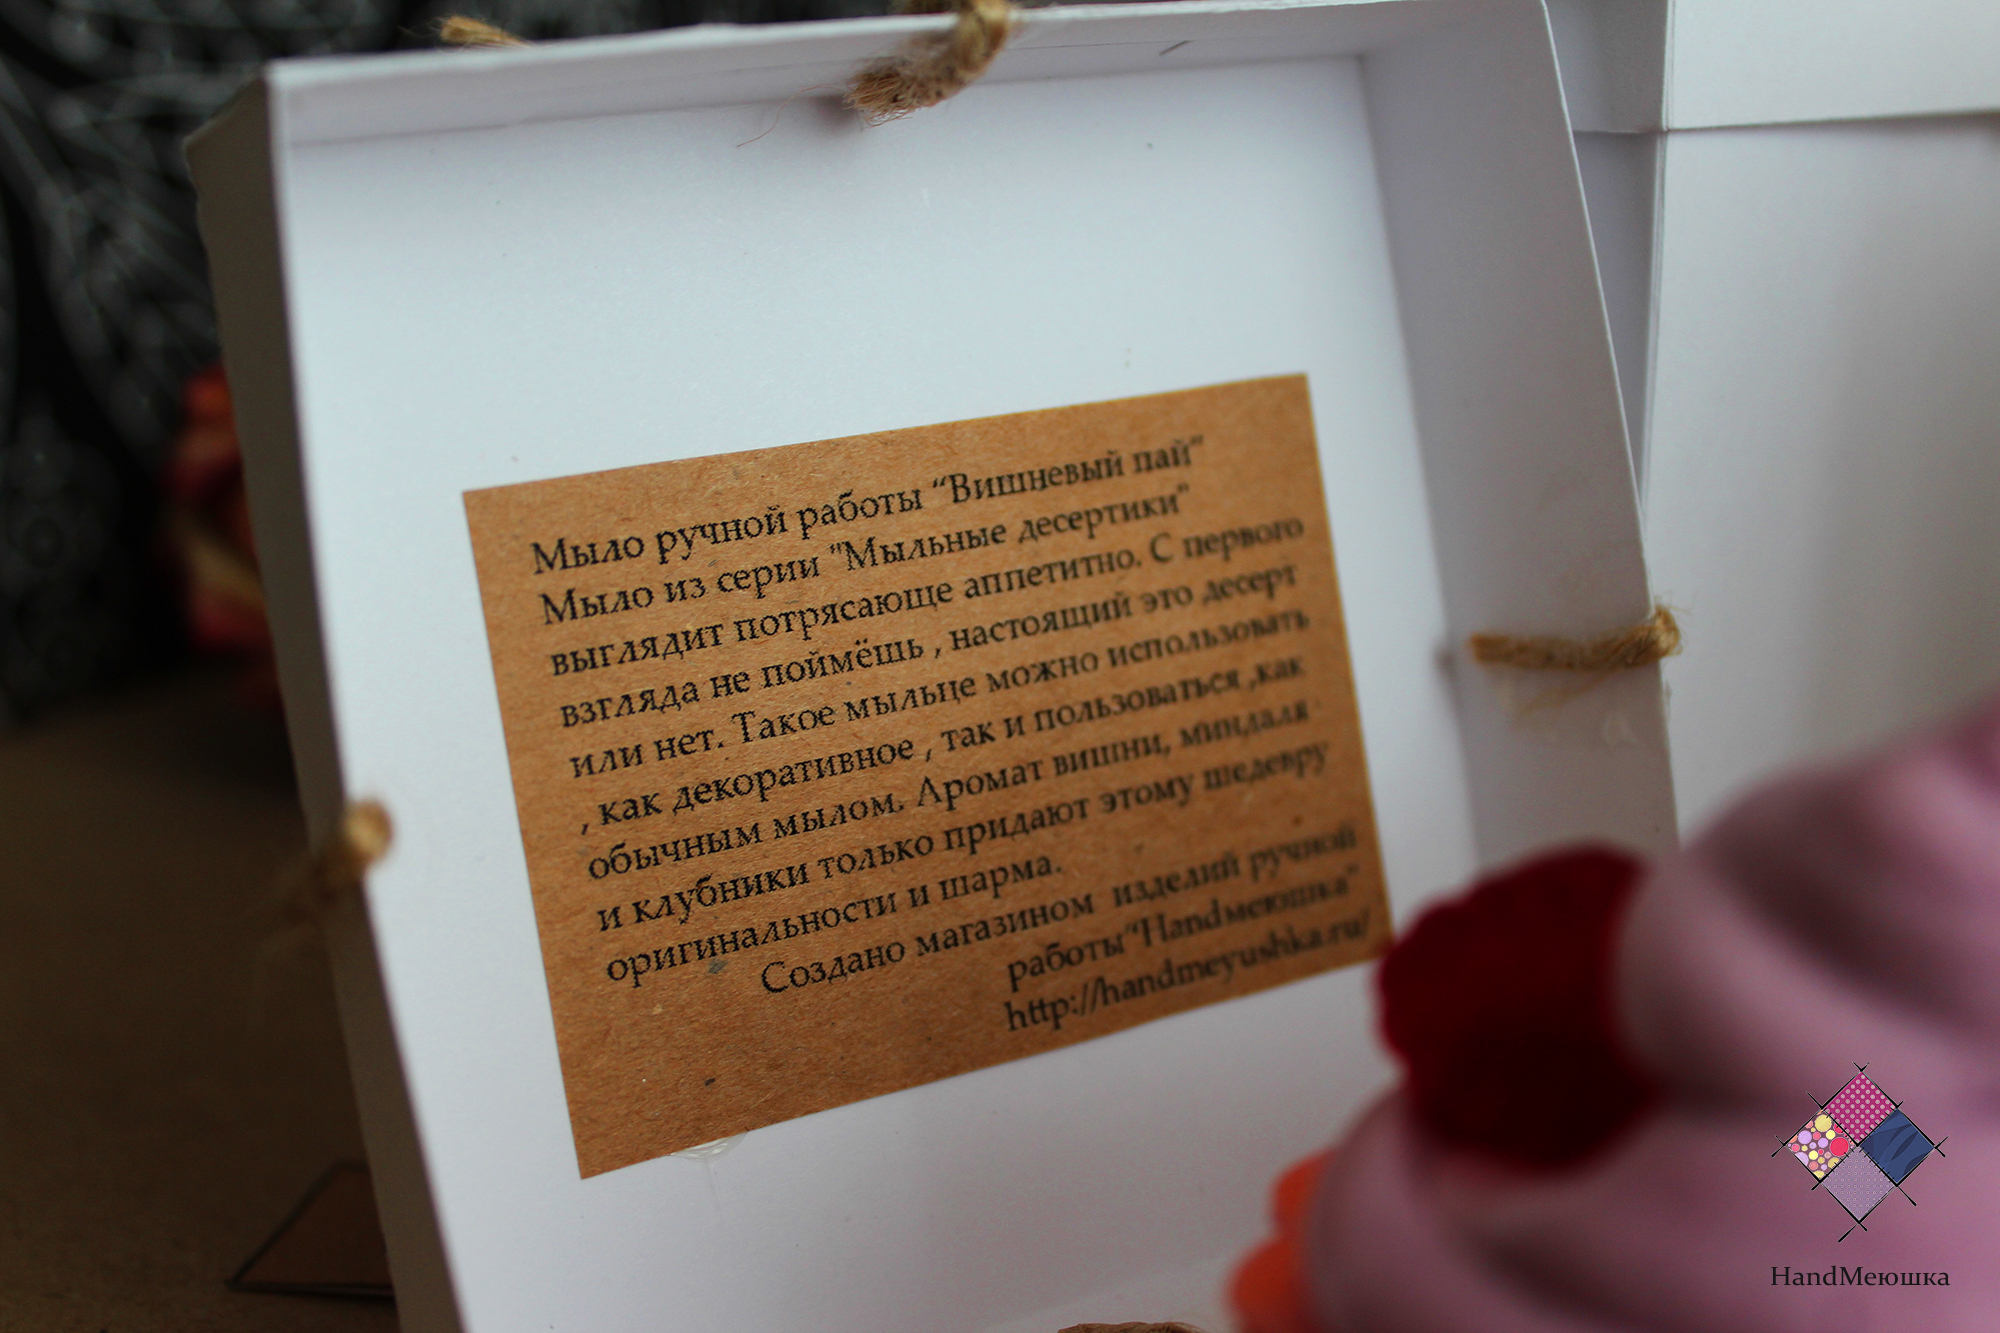 Мыло ручной работы “Вишневый пай“
Мыло из серии "Мыльные десертики"
выглядит потрясающе аппетитно. С первого
взгляда не поймёшь , настоящий это десерт
или нет. Такое мыльце можно использовать
, как декоративное , так и пользоваться ,как
обычным мылом. Аромат вишни, миндаля
и клубники только придают этому шедевру
оригинальности и шарма.
Создано магазином изделий ручной
работы“Handмеюшка"
http://handmeyushka.ru/
HandМеюшка